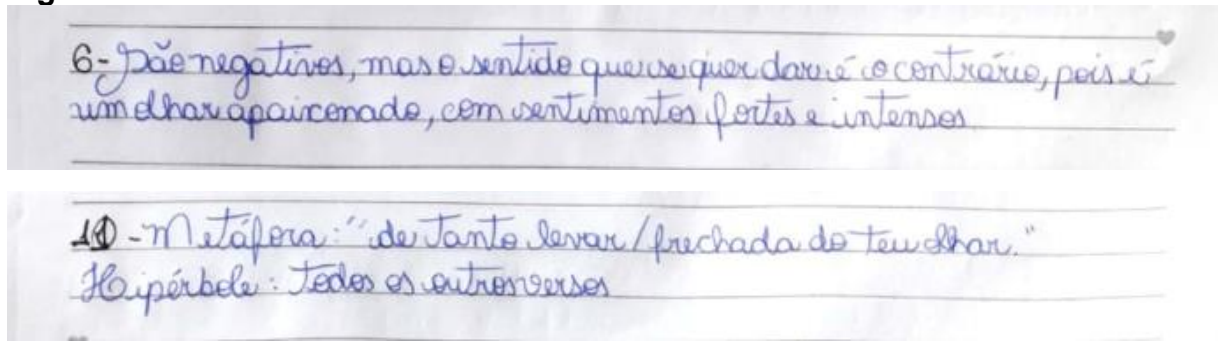 6- São negativos, mas o sentido que se quer dar é o contrário, pois é
um olhar apaixonado, com sentimentos fortes e intensos.
- Metáfora: "de tanto levar/frechada do teu olhar."
Hipérbole: Todos os outros versos